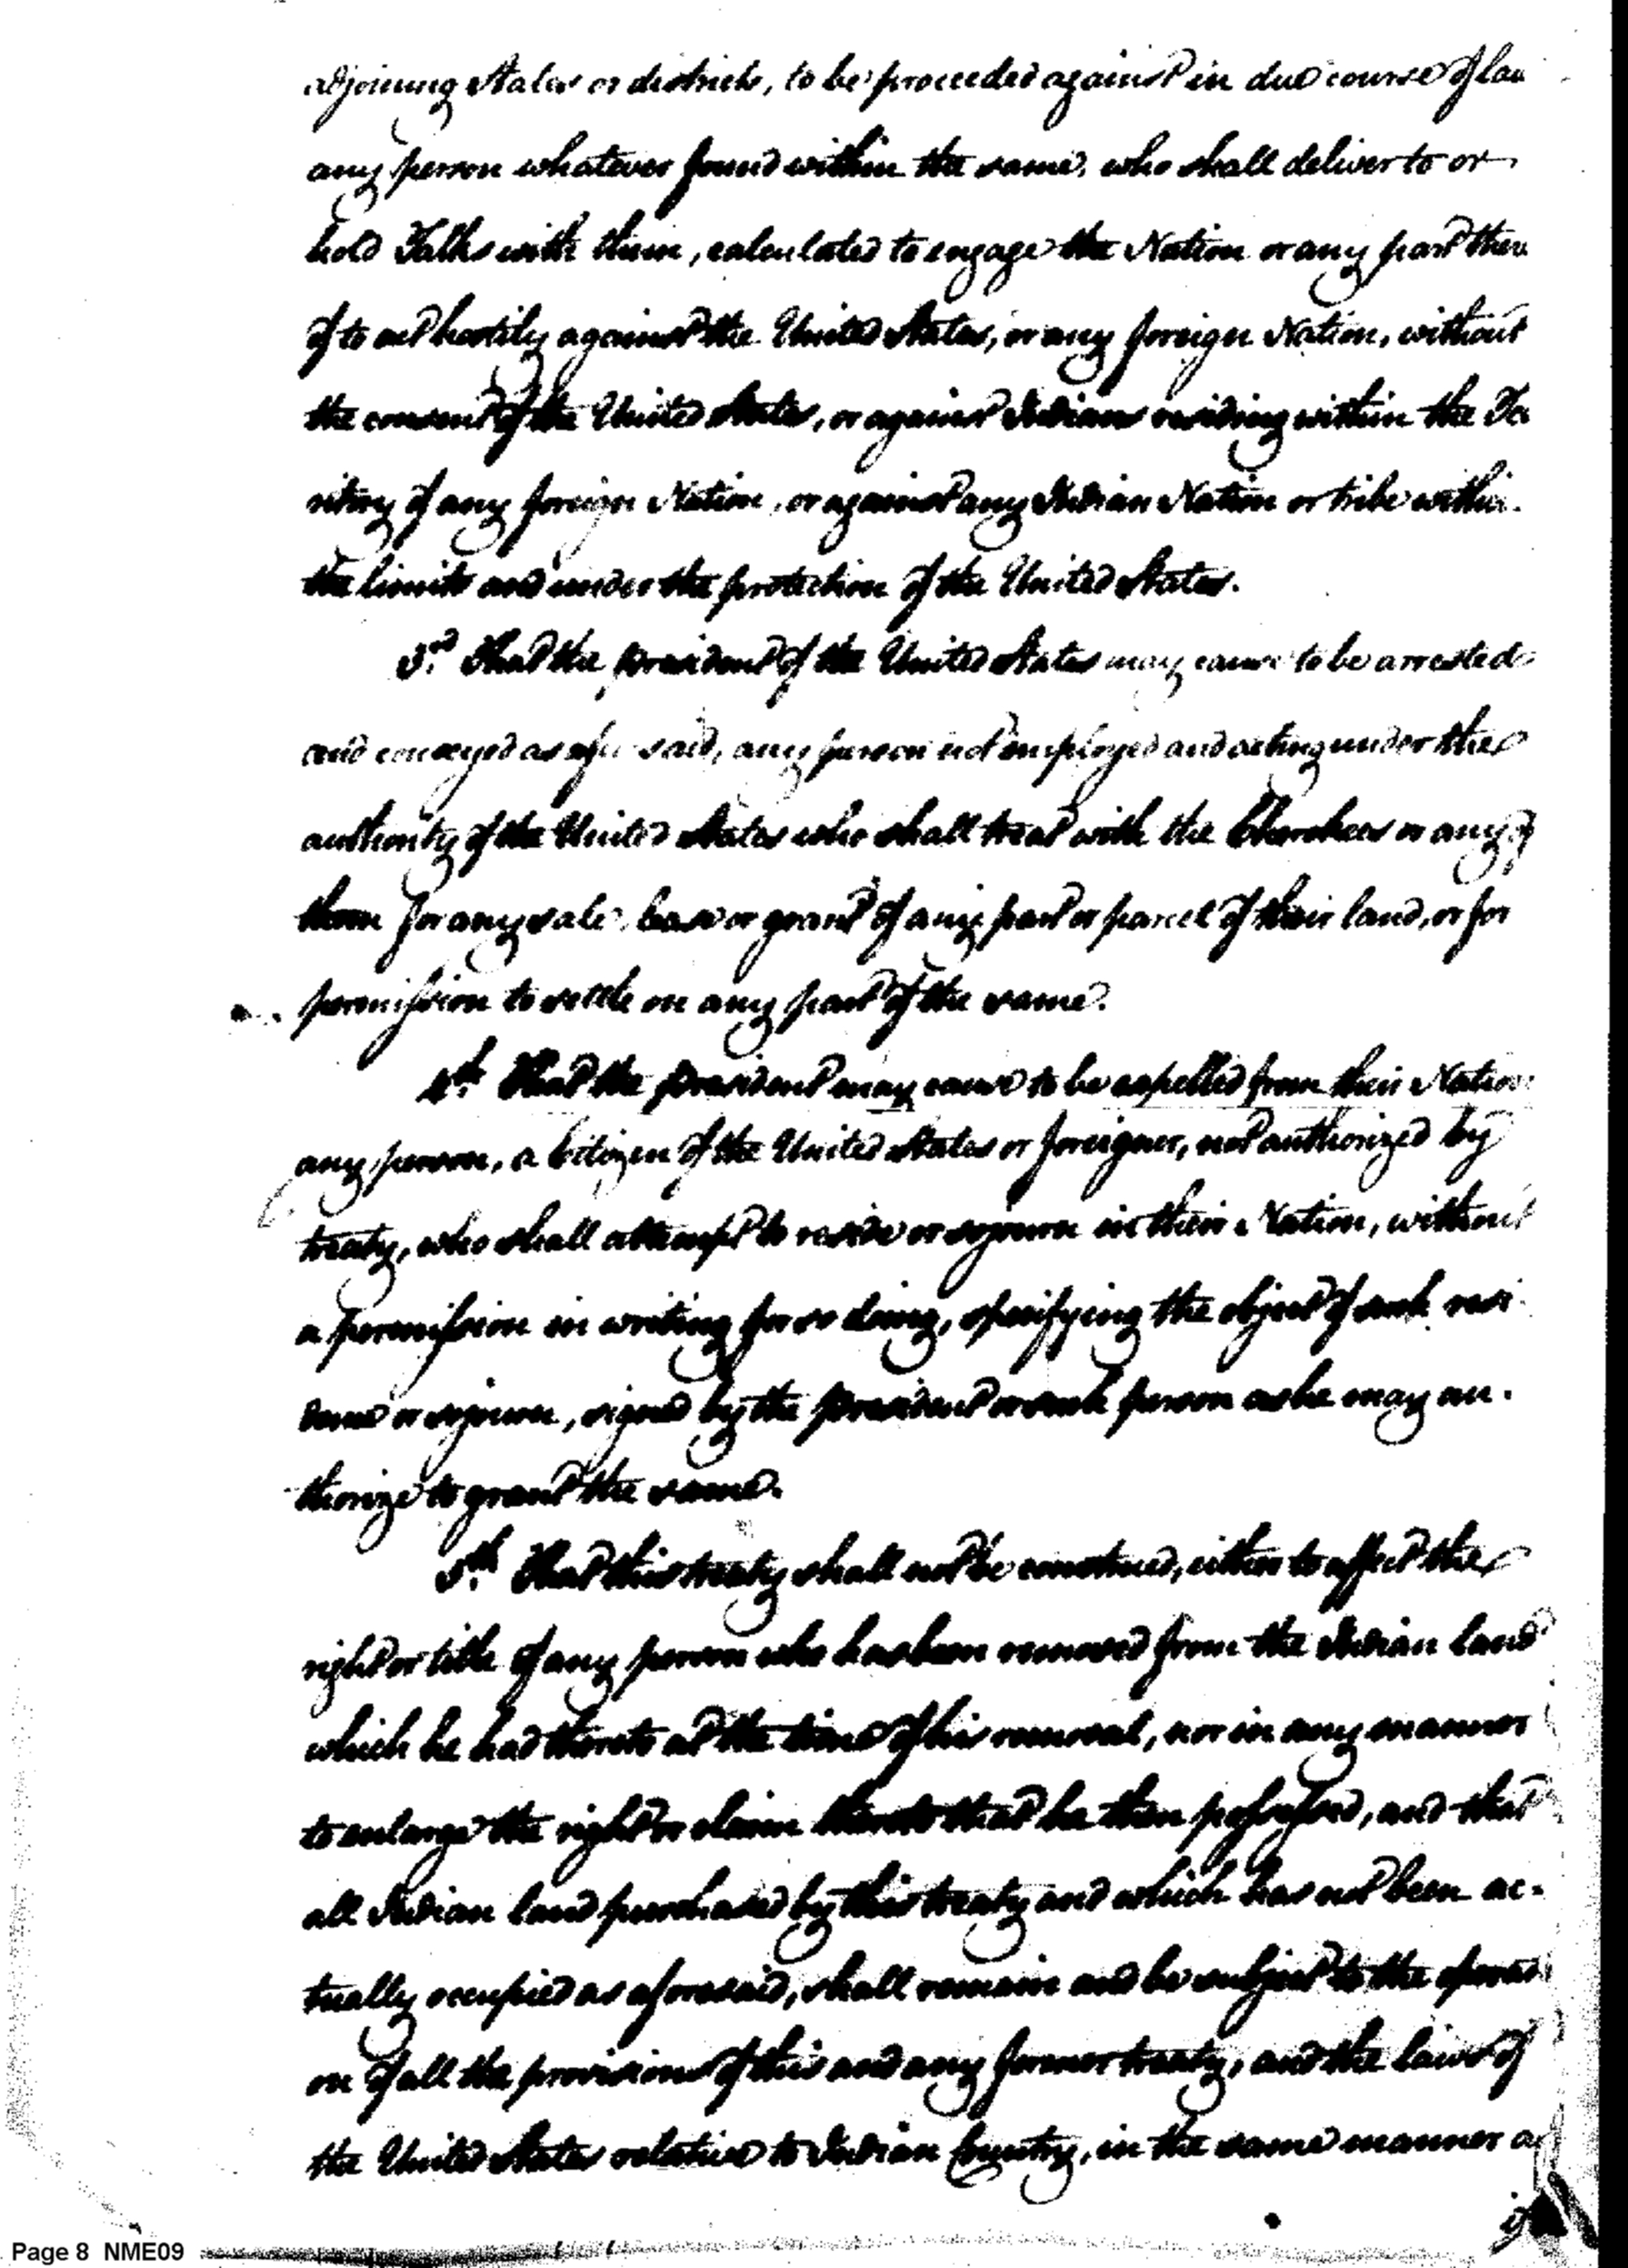 adjoining States or districts, to be proceeded against in due course of law
any person whatever found within the same, who shall deliver to or
hold Talks with them, calculated to engage the Nation or any part there
of to act hostily against the United States, or any foreign Nation, without
the consent of the United States, or against Indians residing within the Ter
ritory of any foreign Nation, or against any Indian Nation or tribe within
the limits and under the protection of the United States.
3rd. That the president of the United States may cause to be arrested
and conveyed as afore said, any person not employed and acting under the
authority of the United States who shall treat with the Cherokees or any of
them for any sale, lease or grant of any part or parcel of their land, or for
permission to settle on any part of the same.
4th. That the president may cause to be expelled from their Nation
any person, a Citizen of the United States or foreigner, not authorized by
treaty, who shall attempt to reside or sojourn in their Nation, without
a permission in writing for so doing, specifying the object of such resi
dence or sojourn, signed by the president or such person as he may au-
thorize to grant the same.
5th. That this treaty shall not be construed, either to affect the
right or title of any person who has been removed from the Indian land
which he had thereto at the time of his removal, nor in any manner
to enlarge the right or claim thereto that he then possessed, and that
all Indian land purchased by this treaty and which has not been ac-
tually occupied as aforesaid, shall remain and be subject to the operati
on of all the provisions of this and any former treaty, and the laws of
the United States relative to Indian Country, in the same manner as
if
Page 8 NME09